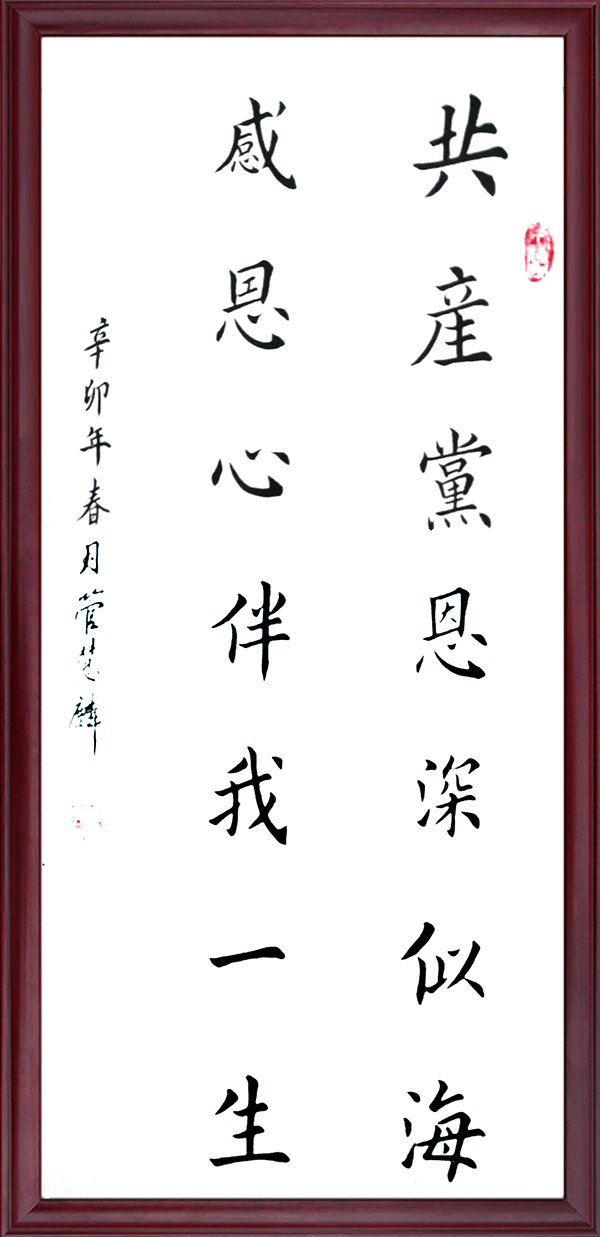 共產黨恩深似海
感恩心伴我一生
辛卯年春月菅慧麟